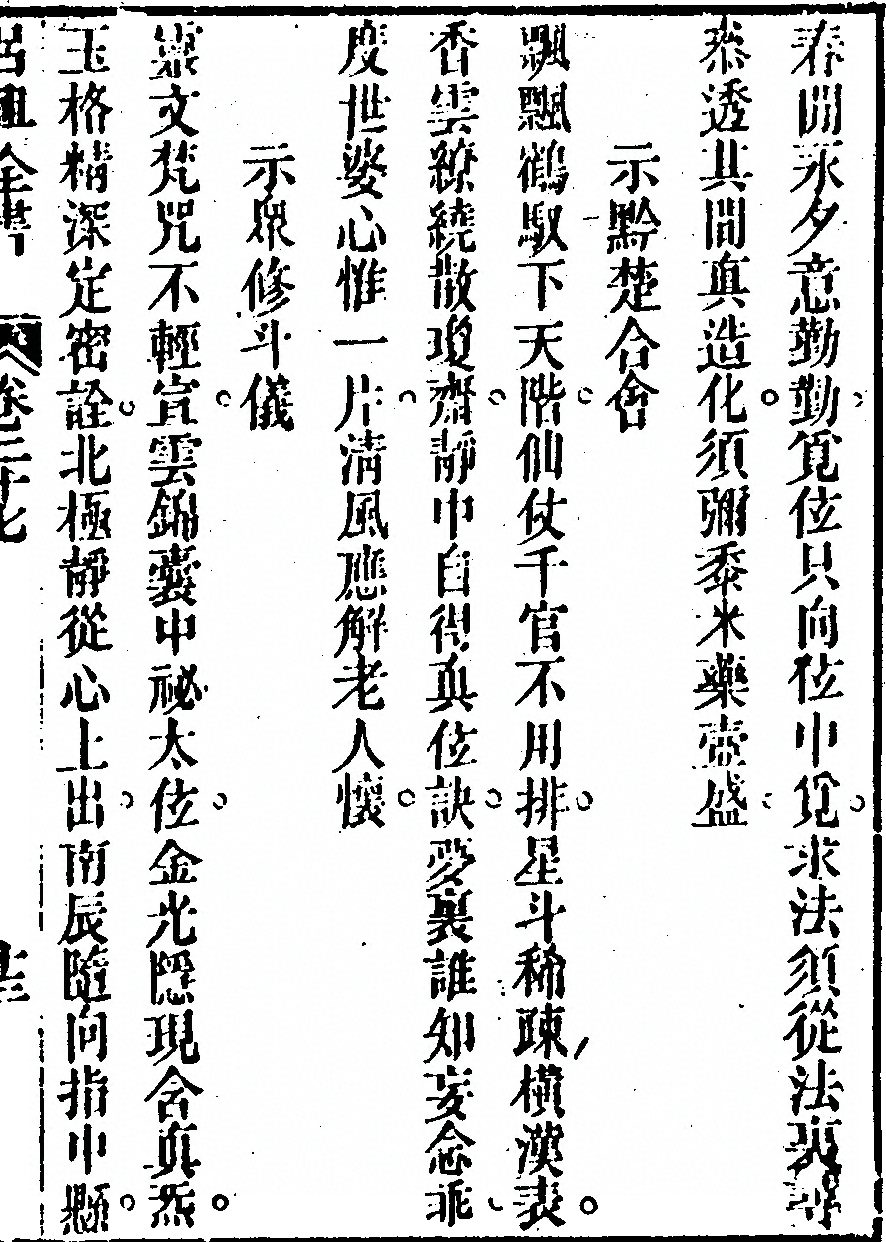 春開永夕意勤勤覓位只向位中覓求法須從法裏尋
悉透其間眞造化須彌黍米藥壺盛
示黔楚合會
飄飄鶴馭下天階仙仗千官不用排星斗稀疎橫漢表
香雲繚繞散瓊齋靜中自得眞位訣夢裏誰知妄念乖
度世婆心惟一片淸風應解老人懷
示衆修斗儀
靈文梵咒不輕宣雲錦囊中祕太位金光隱現含眞炁
玉格精深定密詮北極靜從心上出南辰隨向指中懸
呂祖全書 卷二十七